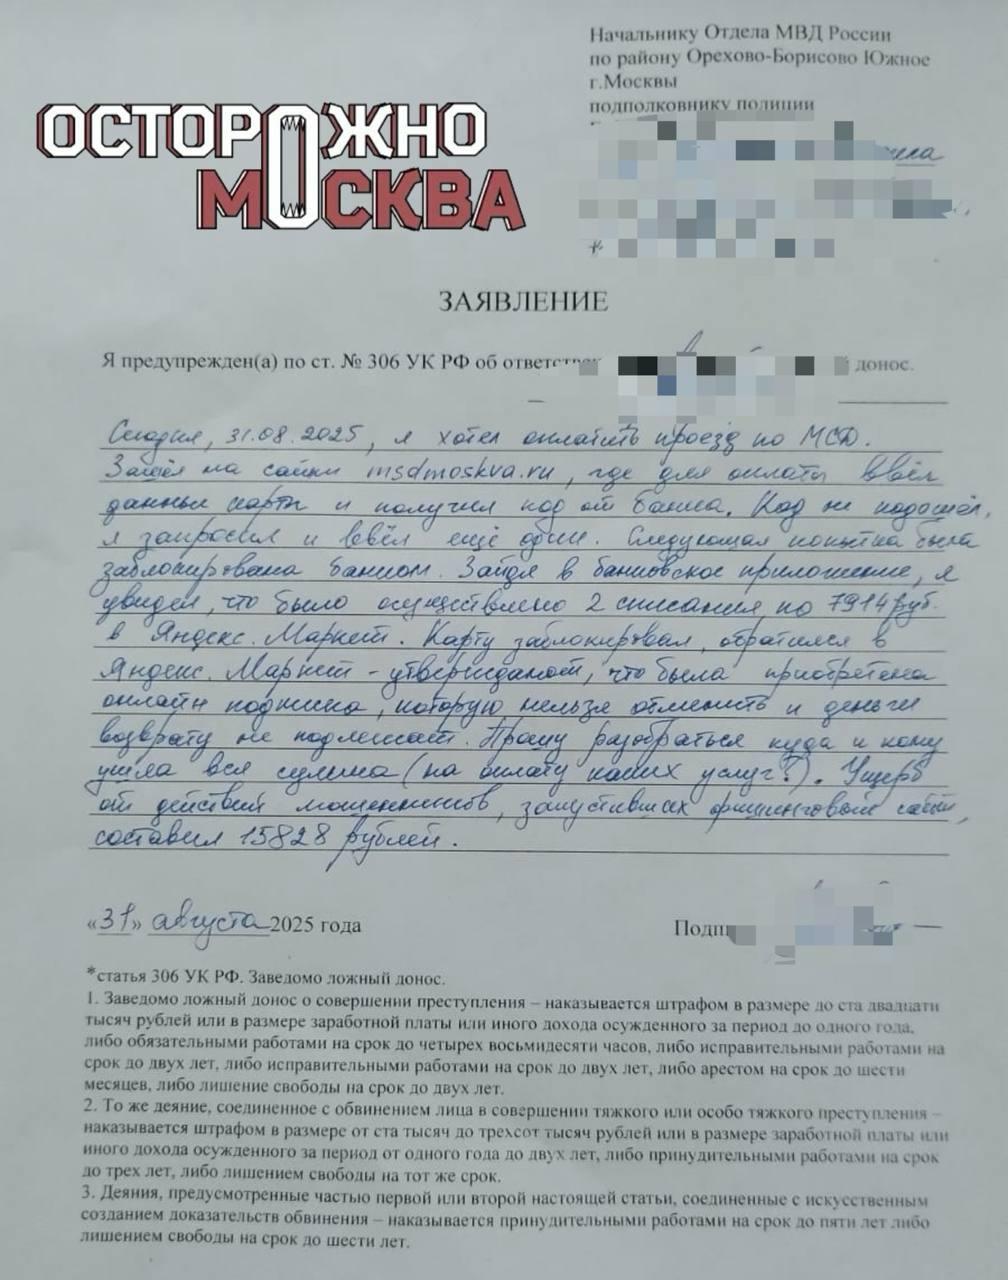 Начальнику Отдела МВД России
по району Орехово-Борисово Южное
г.Москвы
подполковнику полиции
ОСТОРОЖНО
МОСКВА
ЗАЯВЛЕНИЕ
Я предупрежден(а) по ст. № 306 УК РФ об донос.
Сегодня, 31.08.2025, я хотел оплатить проезд по МСД.
Зашёл на сайт msdmoskva.ru, где для оплаты ввёл
данные карты и получил код от банка. Код не подошёл,
я запросил и ввёл ещё один. Следующая попытка была
заблокирована банком. Зайдя в банковское приложение, я
увидел, что было осуществлено 2 списания по 7914 руб.
в Яндекс.Маркет. Карту заблокировал, обратился в
Яндекс.Маркет - утверждают, что была приобретена
онлайн подписка, которую нельзя отменить и деньги
возврату не подлежат. Прошу разобраться куда и кому
ушла вся сумма (на оплату каких услуг?). Ущерб
от действий мошенников, запустивших фишинговый сайт,
составил 15828 рублей.
«31» августа 2025 года
*статья 306 УК РФ. Заведомо ложный донос.
1. Заведомо ложный донос о совершении преступления – наказывается штрафом в размере до ста двадцати
тысяч рублей или в размере заработной платы или иного дохода осужденного за период до одного года,
либо обязательными работами на срок до четырех восьмидесяти часов, либо исправительными работами на
срок до двух лет, либо исправительными работами на срок до двух лет, либо арестом на срок до шести
месяцев, либо лишение свободы на срок до двух лет.
2. То же деяние, соединенное с обвинением лица в совершении тяжкого или особо тяжкого преступления –
наказывается штрафом в размере от ста тысяч до трехсот тысяч рублей или в размере заработной платы или
иного дохода осужденного за период от одного года до двух лет, либо принудительными работами на срок
до трех лет, либо лишением свободы на тот же срок.
3. Деяния, предусмотренные частью первой или второй настоящей статьи, соединенные с искусственным
созданием доказательств обвинения – наказывается принудительными работами на срок до пяти лет либо
лишением свободы на срок до шести лет.